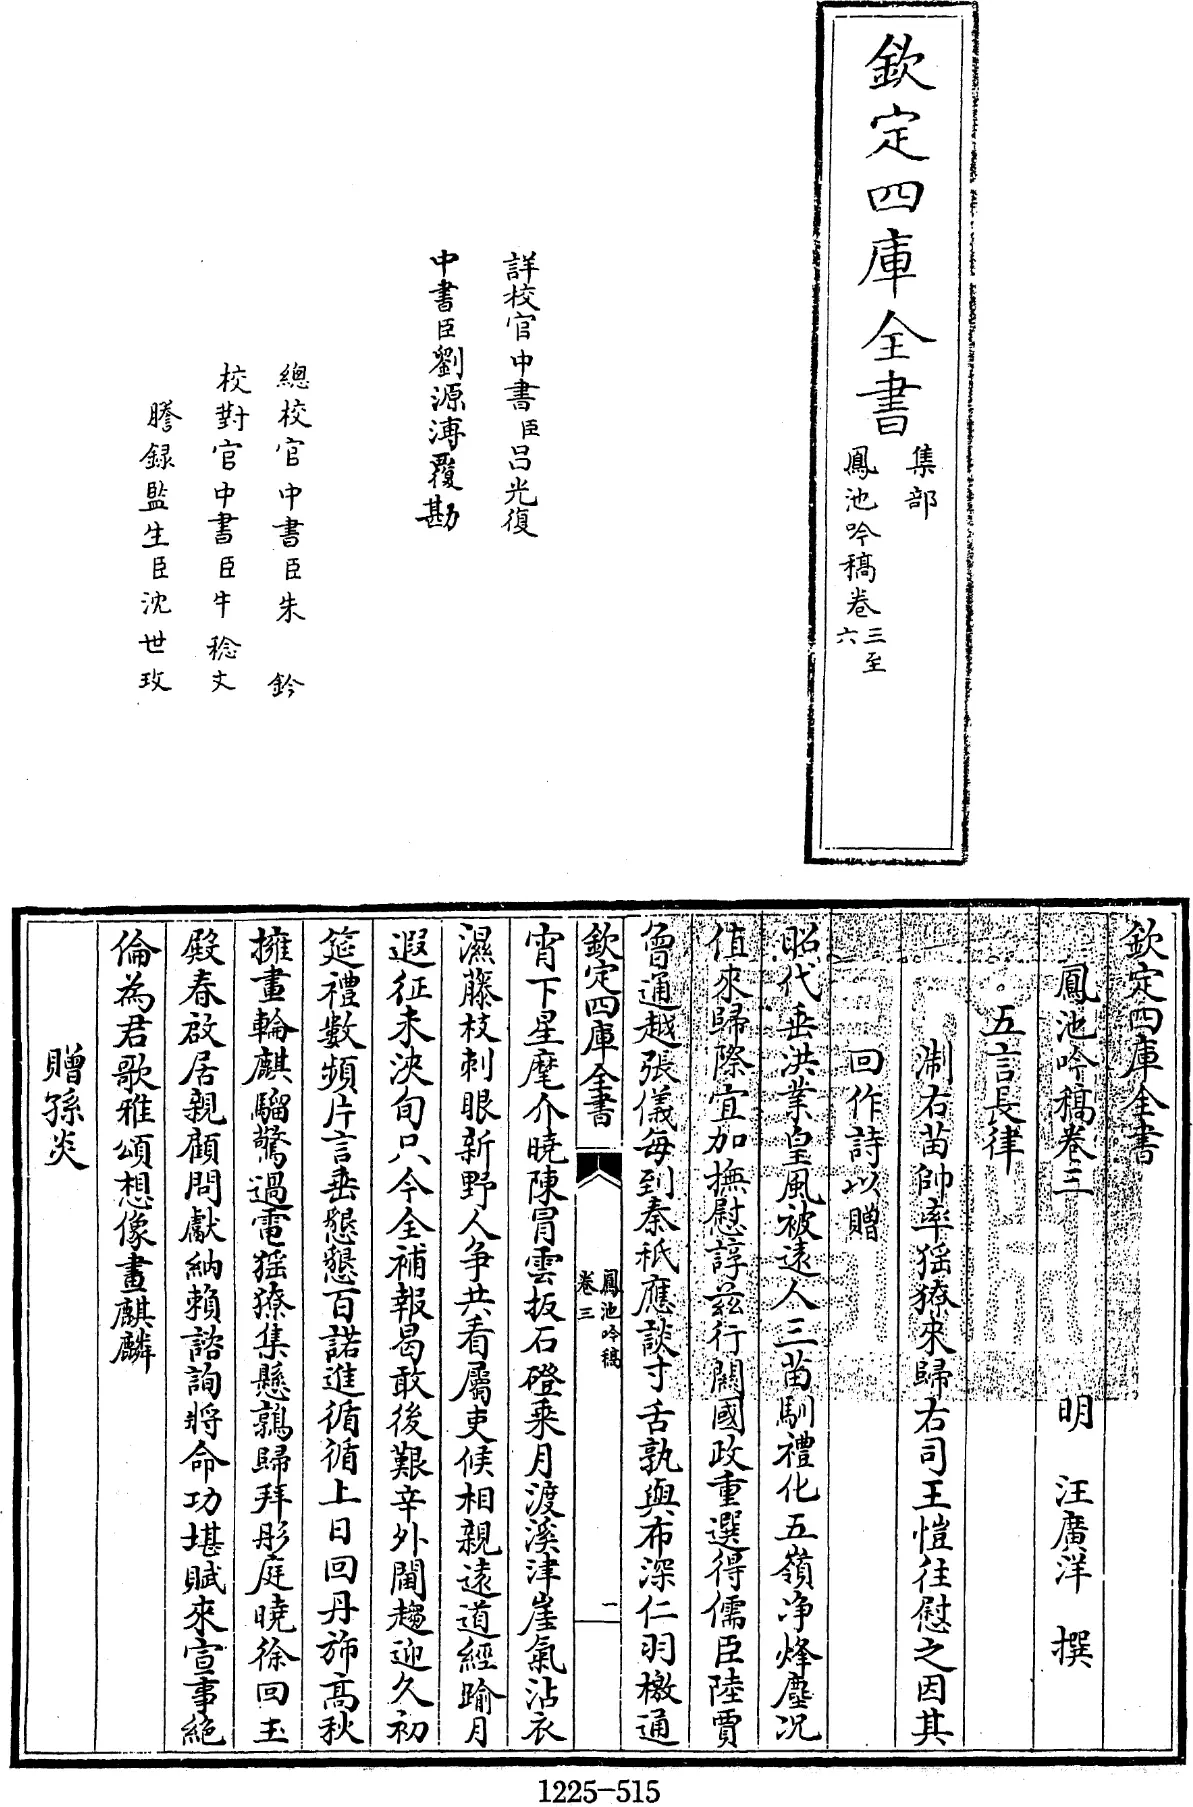 欽定四庫全書
集部
鳳池吟稿卷三至六
詳校官中書臣呂光復
中書臣劉源溥覆勘
總校官中書臣朱鈐
校對官中書臣牛稔文
謄録監生臣沈世玫
欽定四庫全書
鳳池吟稿卷三
明 汪廣洋 撰
五言長律
淛右苗帥率猺獠來歸右司王愷往慰之因其
回作詩以贈
昭代垂洪業皇風被遠人三苗馴禮化五嶺净烽塵况
值來歸際宜加撫慰諄兹行關國政重選得儒臣陸賈
曾通越張儀每到秦祇應談寸舌孰與布深仁羽檄通
欽定四庫全書
鳳池吟稿
卷三
一
宵下星麾介曉陳冐雲扳石磴乘月渡溪津崖氣沾衣
濕藤枝刺眼新野人争共看屬吏候相親遠道經踰月
遐征未浹旬只今全補報曷敢後艱辛外閫趨迎久初
筵禮數頻片言垂懇懇百諾進循循上日回丹旆高秋
擁畫輪麒騮驚過電猺獠集懸鶉歸拜彤庭曉徐回玉
殿春啟居親顧問獻納賴諮詢將命功堪賦來宣事絶
倫為君歌雅頌想像畫麒麟
贈孫炎
1225-515